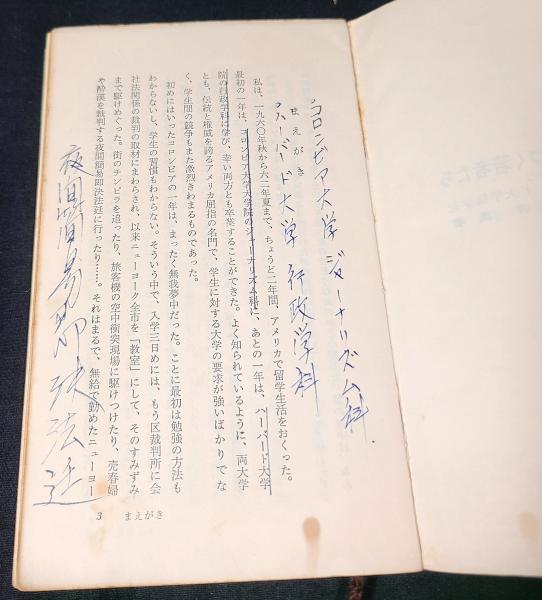 コロンビア大学 ジャーナリズム科.
ハーバード大学 行政学科
まえがき
私は、一九六〇年秋から六二年夏まで、ちょうど二年間、アメリカで留学生活をおくった。
最初の一年は、コロンビア大学大学院のジャーナリズム科に、あとの一年は、ハーバード大学
院の行政学科に学び、幸い両方とも卒業することができた。よく知られているように、両大学
とも、伝統と権威を誇るアメリカ屈指の名門で、学生に対する大学の要求が強いばかりでな
く、学生間の競争もまた激烈きわまるものであった。
初めにはいったコロンビアの一年は、まったく無我夢中だった。ことに最初は勉強の方法も
わからないし、学生の習慣もわからない。そういう中で、入学三日めには、もう区裁判所に会
社法関係の裁判の取材にまわらされ、以来ニューヨーク全市を「教室」にして、そのすみずみ
まで駆けめぐった。街のチンピラを追ったり、旅客機の空中衝突現場に駆けつけたり、売春婦
や酔漢を裁判する夜間簡易即決法廷に行ったり……。それはまるで、無給で勤めたニューヨー
夜間簡易即決法廷
3 まえがき